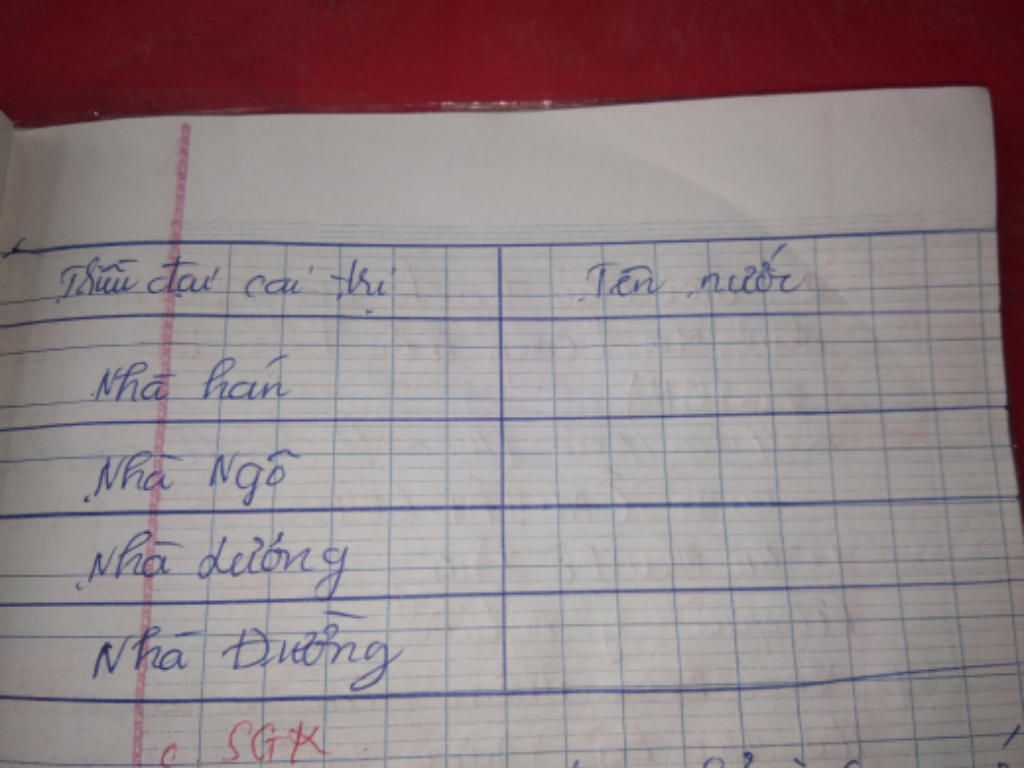 Triều đại cai trị Tên nước
Nhà hán
Nhà Ngô
Nhà Lương
Nhà Đường
SGK